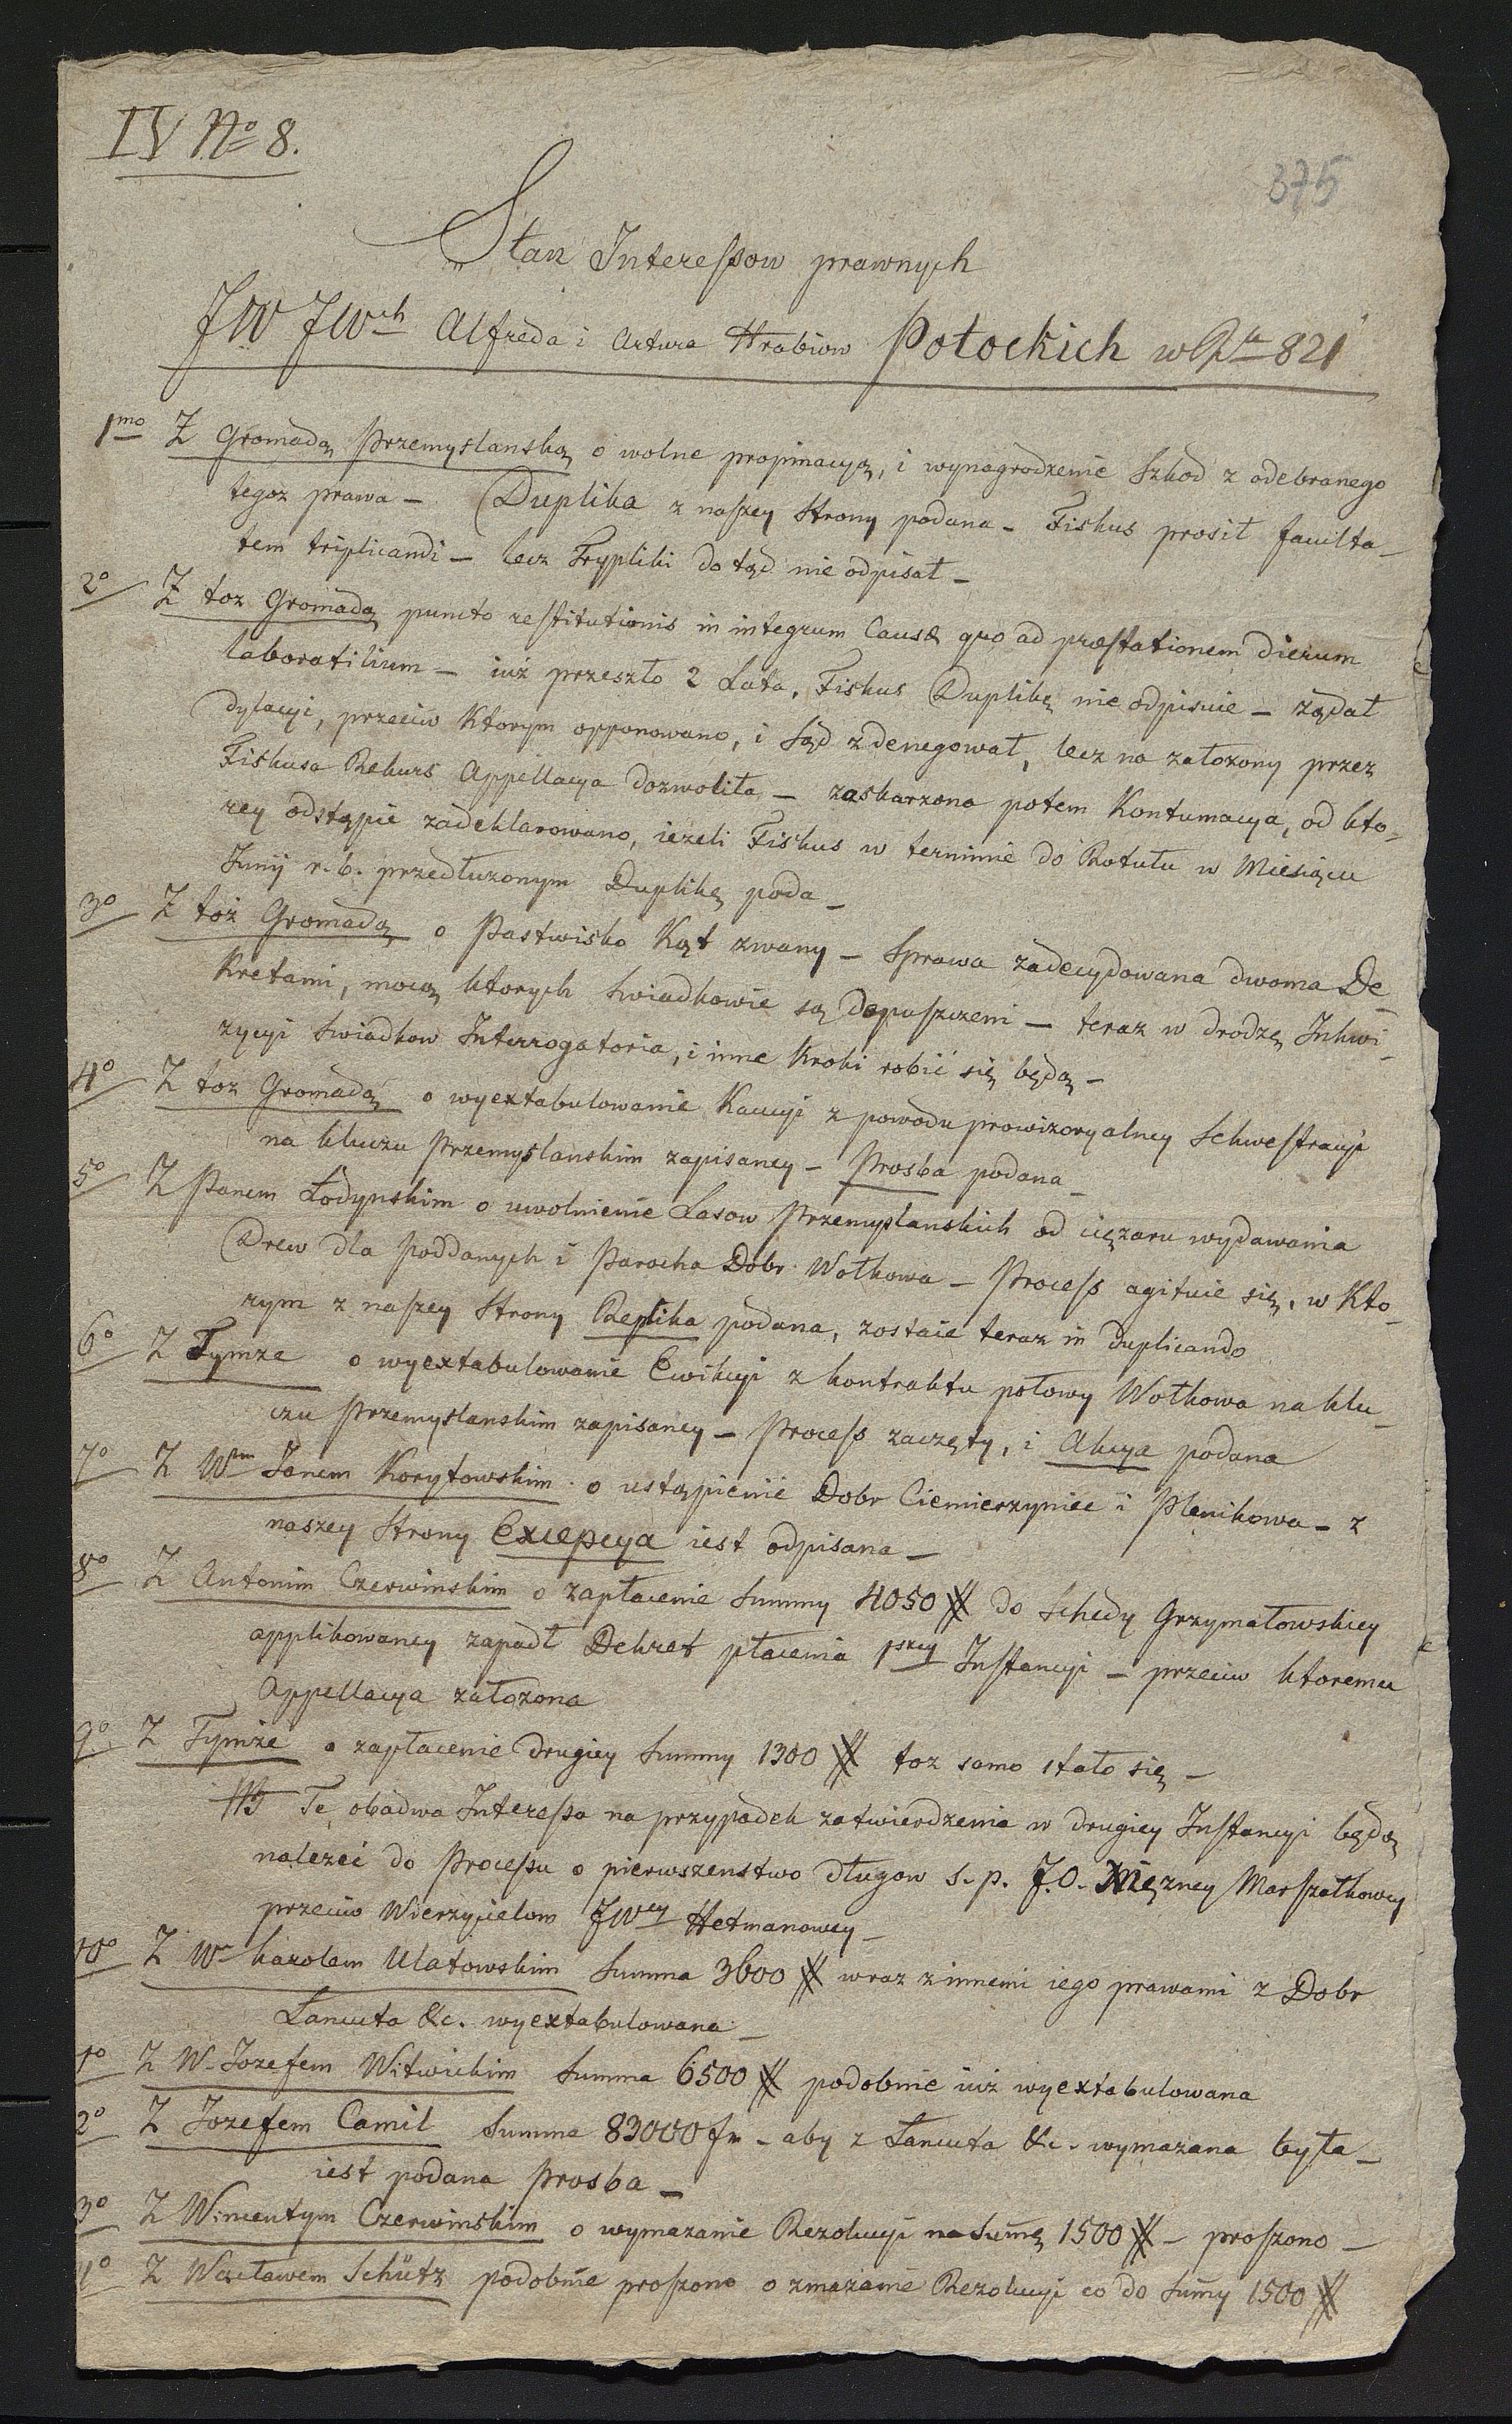 IV No 8.
375
Stan Interessow prawnych
JW JWch Alfreda i Artura Hrabiow Potockich w Rku 821
1mo Z Gromadą Przemyslanską o wolne propinacyą, i wynagrodzenie Szkod z odebranego
tegoz prawa — Duplika z naszey Strony podana — Fiskus prosił faculta-
tem triplicandi — lecz Trypliki do tąd nie odpisał —
2o Z toz Gromadą puncto restitutionis in integrum Causæ quo ad præstationem dierum
laboratilium — iuż przeszło 2 Lata, Fiskus Duplikę nie odpisuie — żądał
dylacyi, przeciw ktorym opponowano, i Sąd zdenegował, lecz na założony przez
Fiskusa Rekurs Appellacya dozwoliła — zaskarzona potem Kontumacya, od kto-
rey odstąpić zadeklarowano, ieżeli Fiskus w terminie do Rotułu w Miesiącu
Junij r. b. przedłużonym Duplikę poda —
3o Z toż Gromadą o Pastwisko Kąt zwany — Sprawa zadecydowana dwoma De-
kretami, mocą ktorych Swiadkowie są dopuszczeni — teraz w drodzę Inkwi-
zycyi Swiadkow Interrogatoria, i inne Kroki robić się będą —
4o Z toz Gromadą o wyextabulowanie Kaucyi z powodu prowizoryalney Sekwestracyi
na kluczu Przemyslanskim zapisaney — Prosba podana —
5o Z Panem Łodynskim o uwolnienie Lasow Przemyslanskich od ciężaru wydawania
Drew dla poddanych i Parocha Dobr Wołkowa — Process agituie się, w kto-
rym z naszey Strony Replika podana, zostaie teraz in duplicando
6o Z Tymze o wyextabulowanie Ewikcyi z kontraktu połowy Wołkowa na klu-
czu Przemyslanskim zapisaney — Process zaczęty, i Akcya podana
7o Z Wm Janem Korytowskim o ustąpienie Dobr Ciemierzyniec i Plenikowa — z
naszey Strony Excepcya iest odpisana —
8o Z Antonim Czerwinskim o zapłacenie Summy 4050 # do Schedy Grzymałowskiey
applikowaney zapadł Dekret płacenia 1szey Instancyi — przeciw ktoremu
Appellacya założona
9o Z Tymże o zapłacenie drugiey Summy 1300 # toz samo stało się —
NB Te obadwa Interessa na przypadek zatwierdzenia w drugiey Instancyi będą
nalezeć do Processu o pierwszenstwo długow s. p. J. O. Xiężney Marszałkowey
przeciw Wierzycielom JWey Hetmanowey —
10o Z W Karolem Ulatowskim Summa 3600 # wraz z innemi iego prawami z Dobr
Lancuta &c. wyextabulowana —
1o Z W Jozefem Witwickim Summa 6500 # podobnie iuż wyextabulowana
2o Z Jozefem Camil Summa 83000 fr — aby z Lancuta &c. wymazana była —
iest podana Prosba —
3o Z Wincentym Czerwinskim o wymazanie Rezolucyi na Sumę 1500 # — proszono —
4o Z Wacławem Schütz podobnie proszono o zmazanie Rezolucyi co do Sumy 1500 #